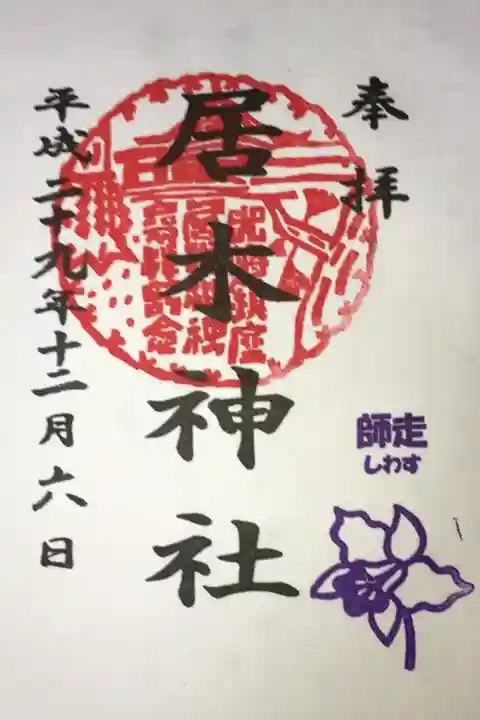 奉拝
居木神社
平成二十九年十二月六日
師走
しわす